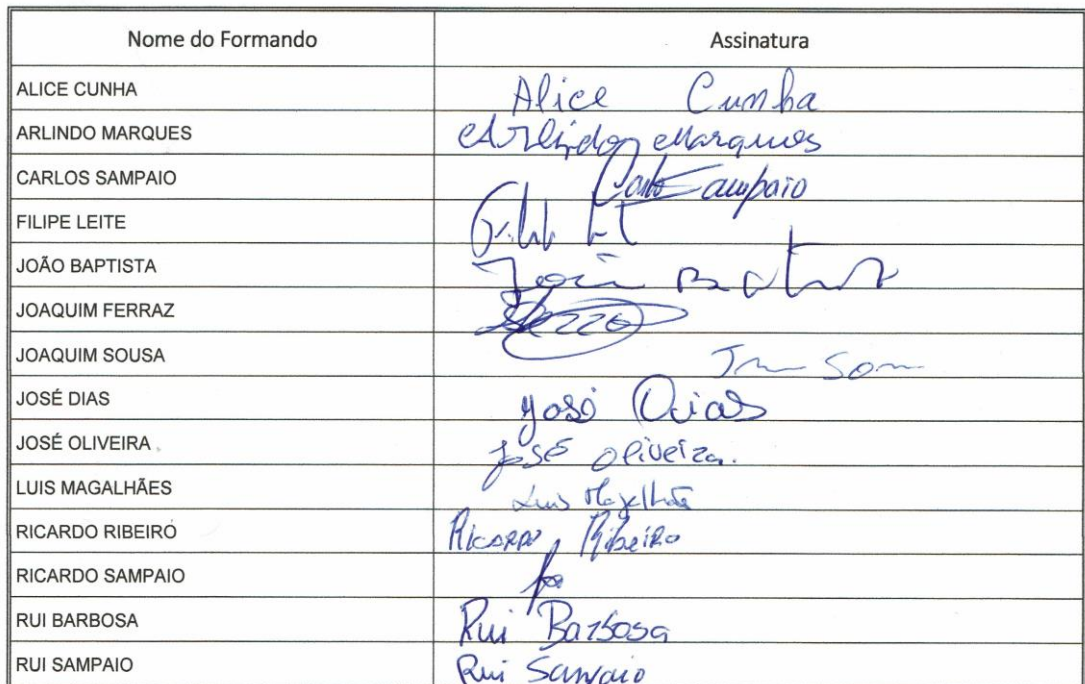 Nome do Formando Assinatura
ALICE CUNHA Alice Cunha
ARLINDO MARQUES Arlindo Marques
CARLOS SAMPAIO Carlos Sampaio
FILIPE LEITE
JOÃO BAPTISTA João
JOAQUIM FERRAZ
JOAQUIM SOUSA
JOSÉ DIAS José Dias
JOSÉ OLIVEIRA José Oliveira.
LUIS MAGALHÃES Luis Magalhães
RICARDO RIBEIRO Ricardo Ribeiro
RICARDO SAMPAIO
RUI BARBOSA Rui Barbosa
RUI SAMPAIO Rui Sampaio